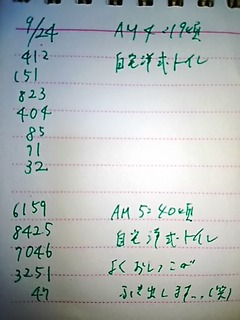 9/24 AM 4:19頃
412 自宅洋式トイレ
151
823
404
85
71
32
6159 AM 5:40頃
8425 自宅洋式トイレ
7046 よくおしっこが
3251 ふき出します..(笑)
47